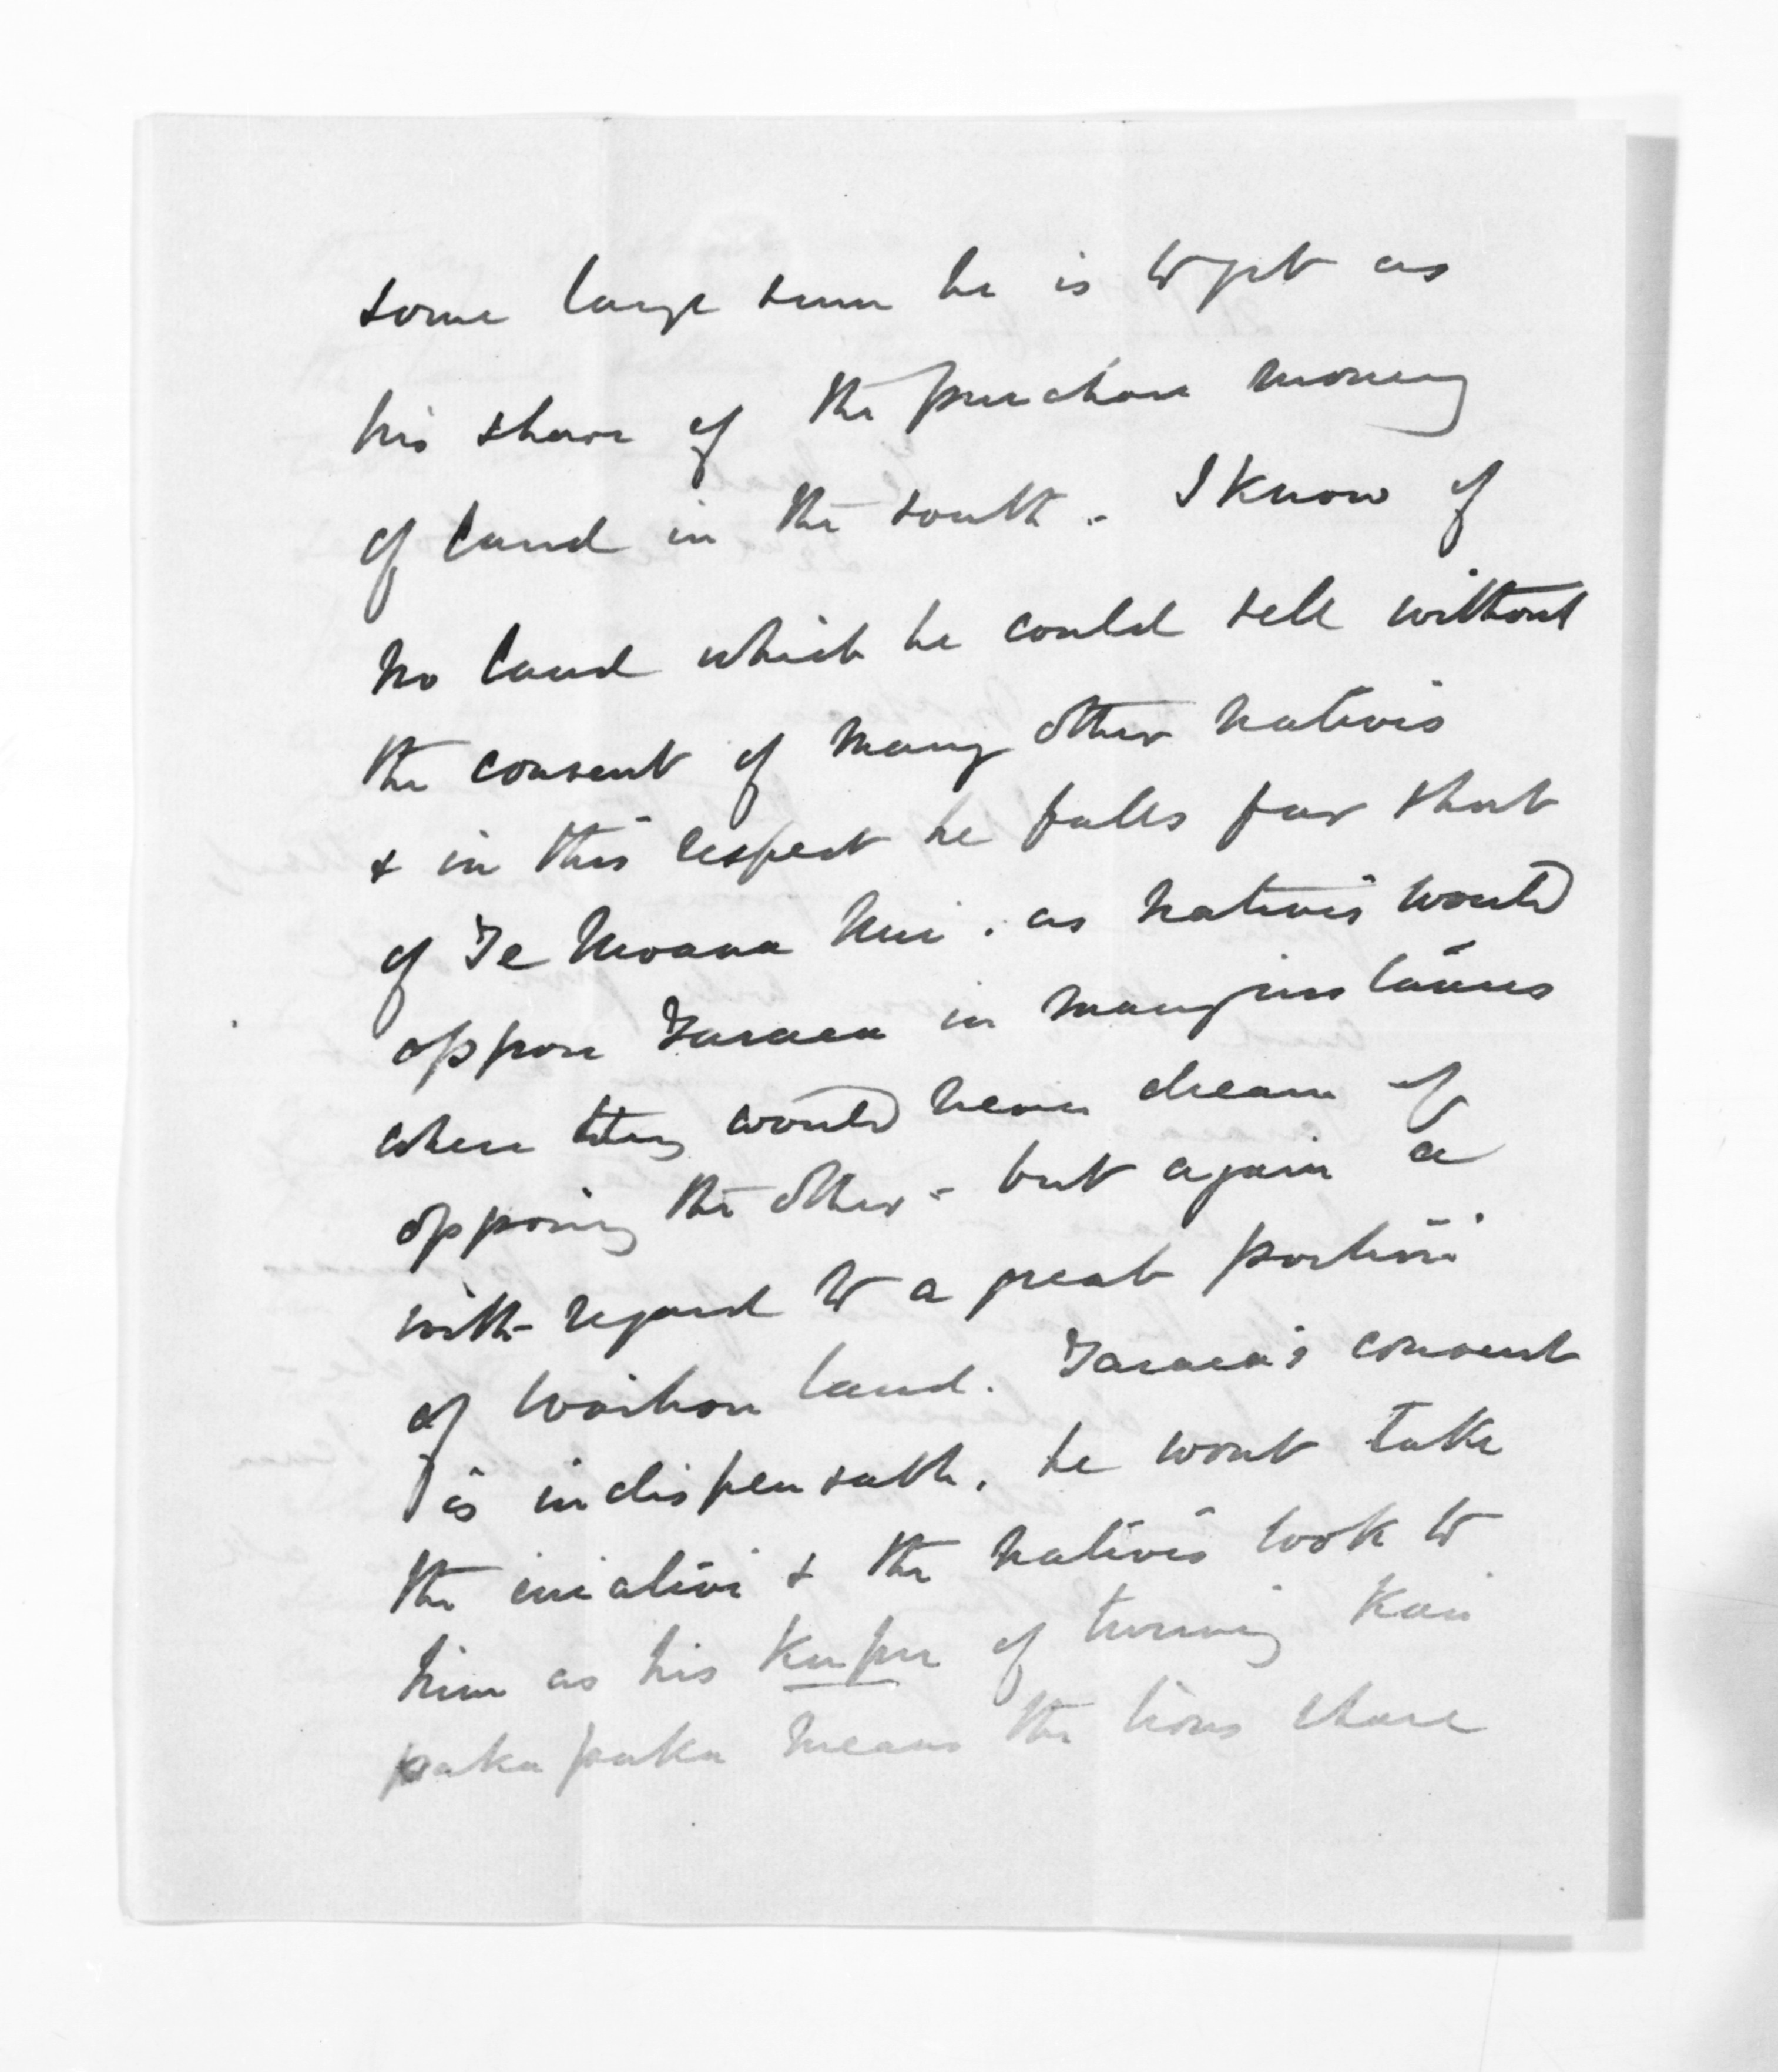 some large sum he is to get as
his share of the purchase money
of land in the south. I know of
no land which he could sell without
the consent of many other natives
& in this respect he falls far short
of Te Moana Nui. as natives would
oppose Tareaa in many instances
where they would never dream of
opposing the other - but again a
with regard to a great portion
of Wairoa land. Tareaa's consent
is indispensable. he wont take
the iniative & the natives look to
him as his kupu of turning Kai
paka paka means the lions share